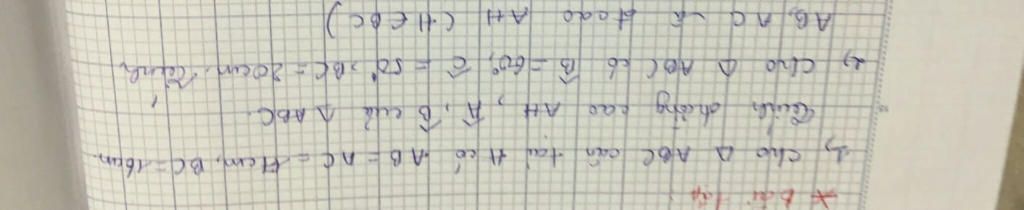 * Bài tập
1, Cho Δ ABC cân tại A có AB = AC = 17cm, BC = 16cm.
Tính đường cao AH, Â, B̂ của Δ ABC.
2, Cho Δ ABC có B̂ = 60°, Ĉ = 50°, BC = 20cm. Tính
AB, AC và đcao AH (H ∈ BC)